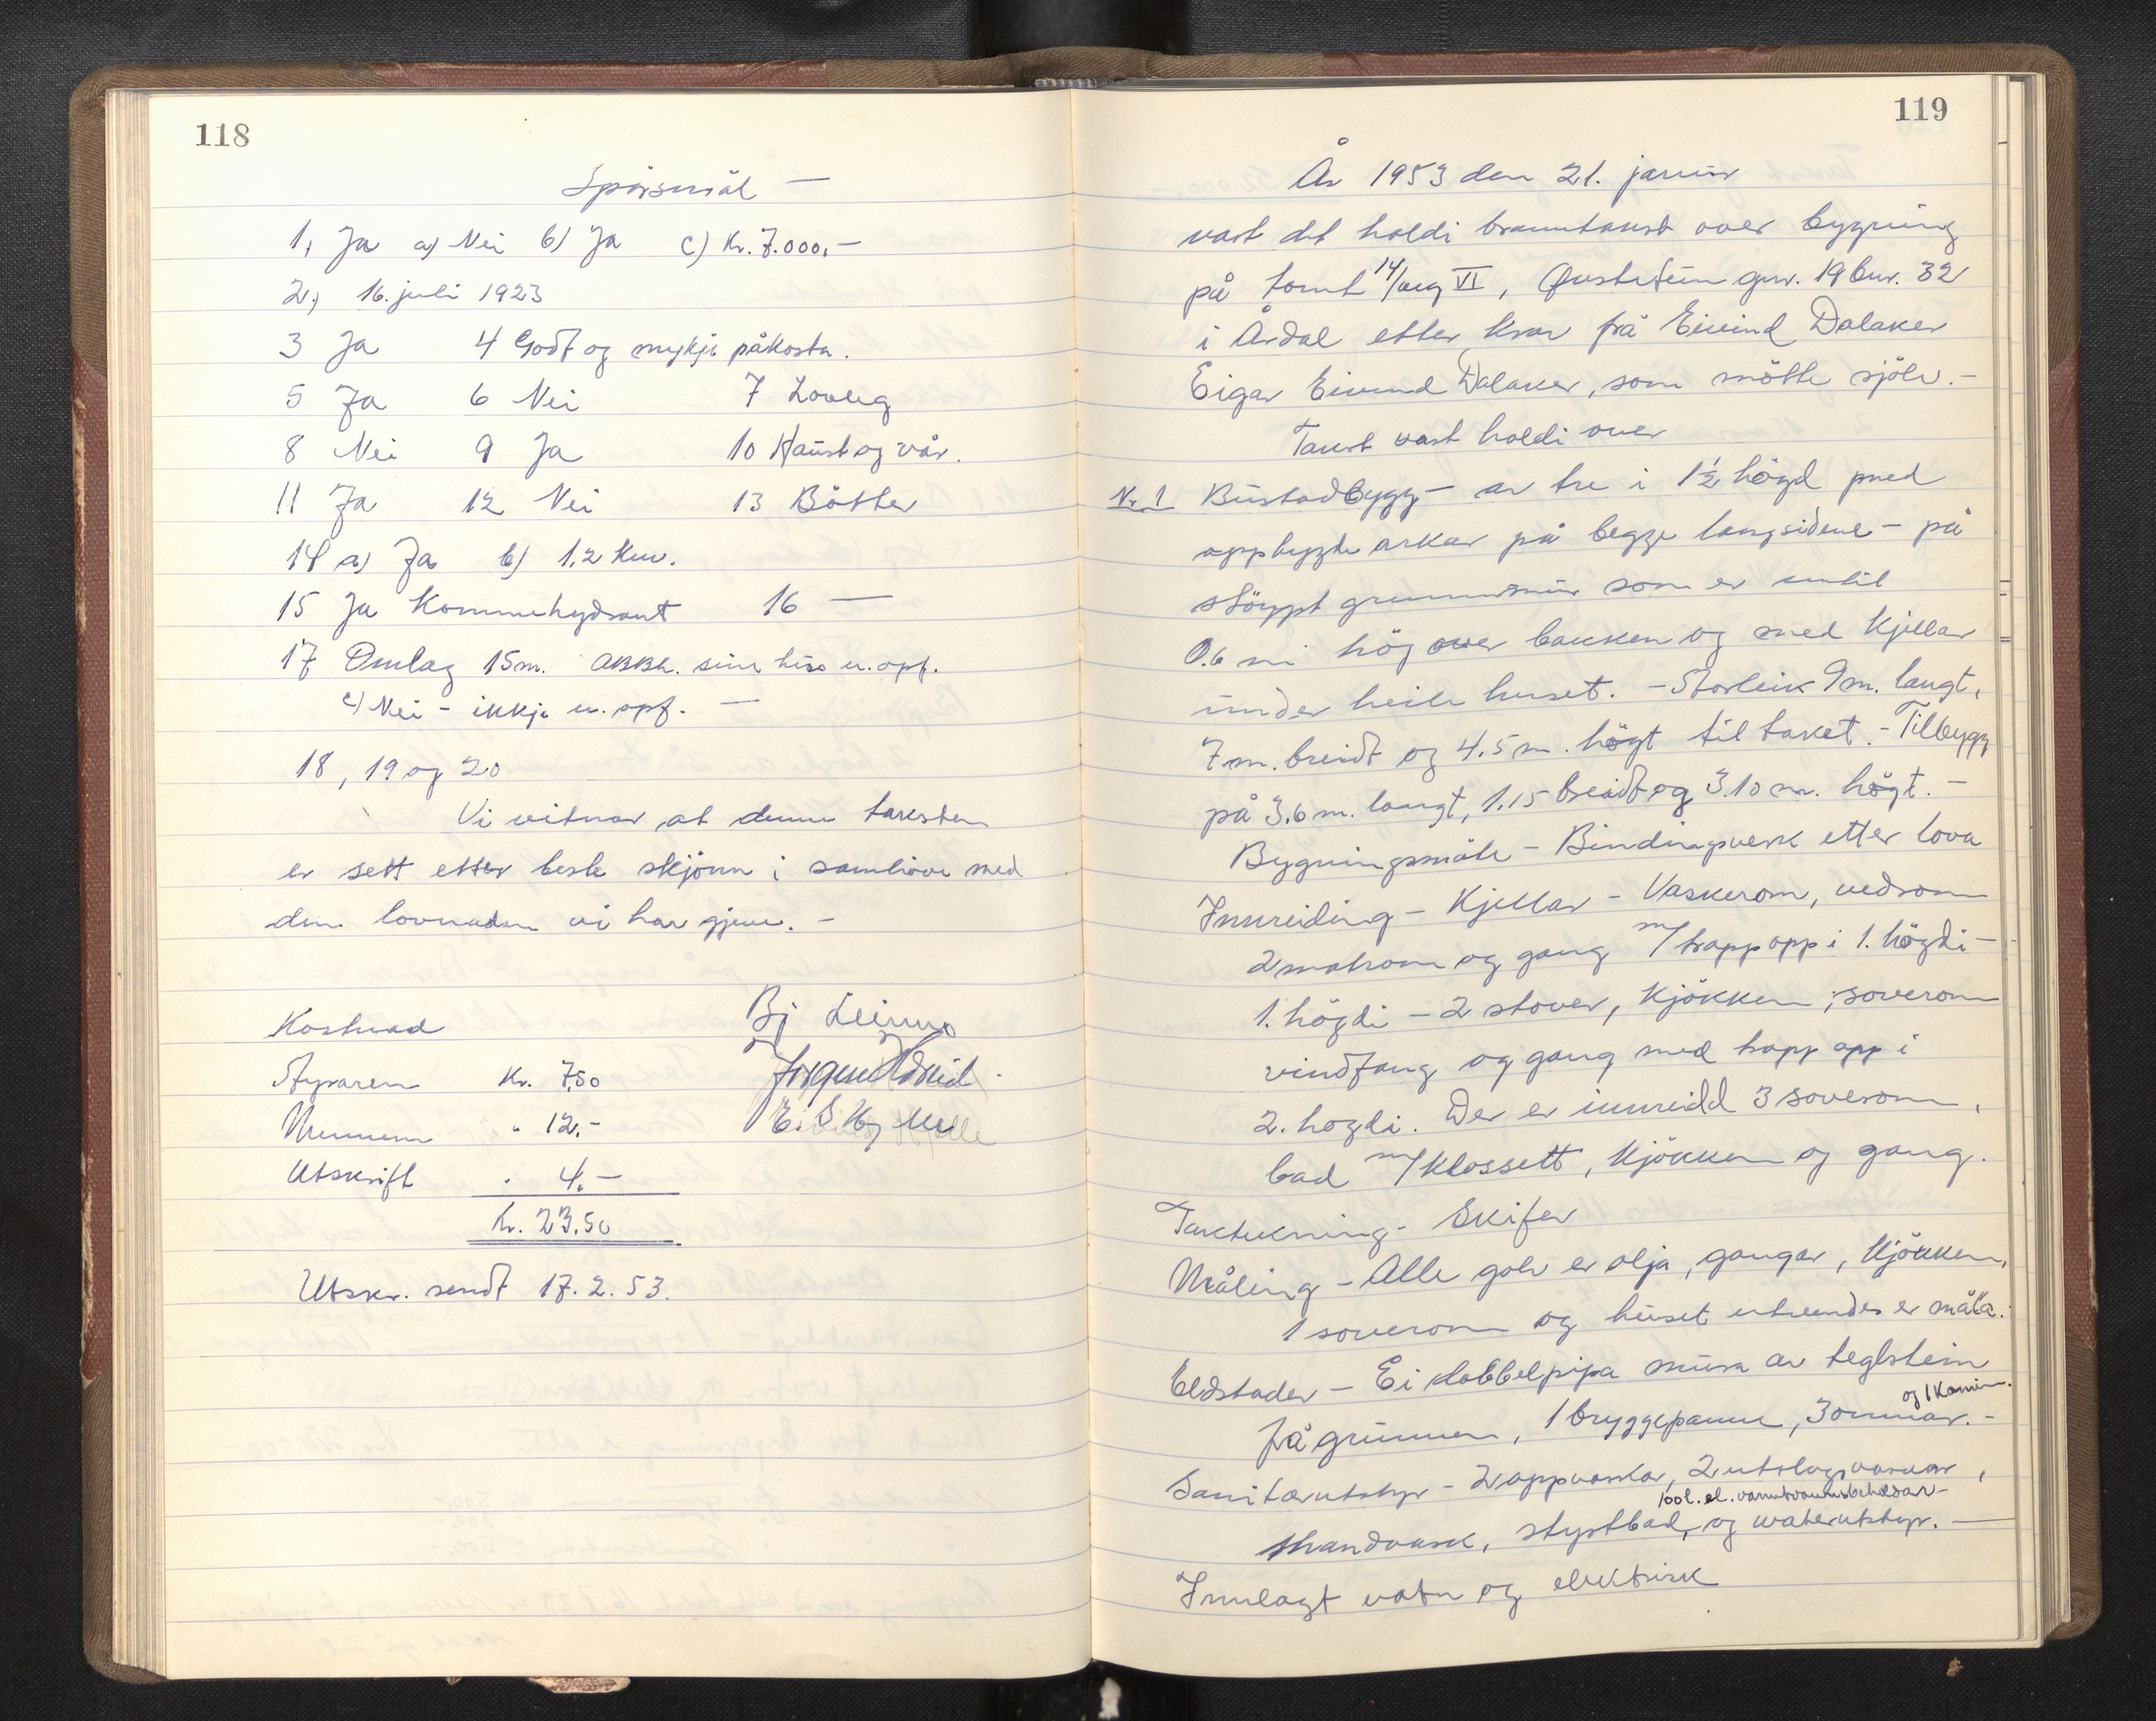 118
Spörsmål —
1, Ja a) Nei b) Ja c) Kr. 7.000,-
2, 16. juli 1923
3 Ja 4 Godt og mykje påkosta.
5 Ja 6 Nei 7 Lovleg
8 Nei 9 Ja 10 Haust og vår.
11 Ja 12 Nei 13 Bötter
14 a) Ja b) 1,2 km.
15 Ja Kommehydrant 16 —
17 Omlag 15m. abbh. sine hus u. opf.
c) Nei - ikkje u. opf. —
18, 19 og 20
Vi vitnar at denne taksten
er sett etter beste skjönn i samhöve med
den lovnaden vi har gjeve. -
Kostnad Bj
Styraren Kr. 7,50 Jörgen
Nemnem " 12.-
Utskrift " 4.-
Kr. 23.50
Utskr. sendt 17.2.53.
119
År 1953 den 21. januar
vart det haldi branntakst over bygning
på tomt 14/aug VI, gnr. 19 bnr. 32
i Årdal etter krav frå Eivind Dalaker
Eigar Eivind Dalaker, som mötte sjölv.-
Takst vart haldi over
Nr. 1 Bustadbygg - av tre i 1½ högd med
oppbygde arkar på begge langsidene - på
stöypt grunnmur som er inntil
0.6 m hög over bakken og med kjellar
under heile huset. - Storleik 9m. langt,
7m. breidt og 4.5 m. högt til taket. - Tilbygg
på 3.6 m. langt, 1.15 breidt og 3.10 m. högt. -
Bygningsmåte - Bindingsverk etter lova
Innreiding - Kjellar - Vaskerom, vedrom
2 matrom og gang m/trapp opp i 1. högdi -
1. högdi - 2 stover, kjökken, soverom
vindfang og gang med trapp opp i
2. hogdi. Der er innreidd 3 soverom,
bad m/klossett, kjökken og gang.
Taktekning - Skifer
Måling - Alle golv er olja, gangar, kjökken,
1 soverom og huset utvendes er måla.
Eldstader - Ei dobbelpipa mura av teglstein
og 1 kamin.
frå grunnen, 1 bryggepanne, 3 omnar. -
Sanitærutstyr - 2 oppvaskar, 2 utslagsvaskar,
100 l. el. varmtvannsbehaldar -
1 handvask, styptbad, og waterutstyr. —
Innlagt vatn og elektrisk